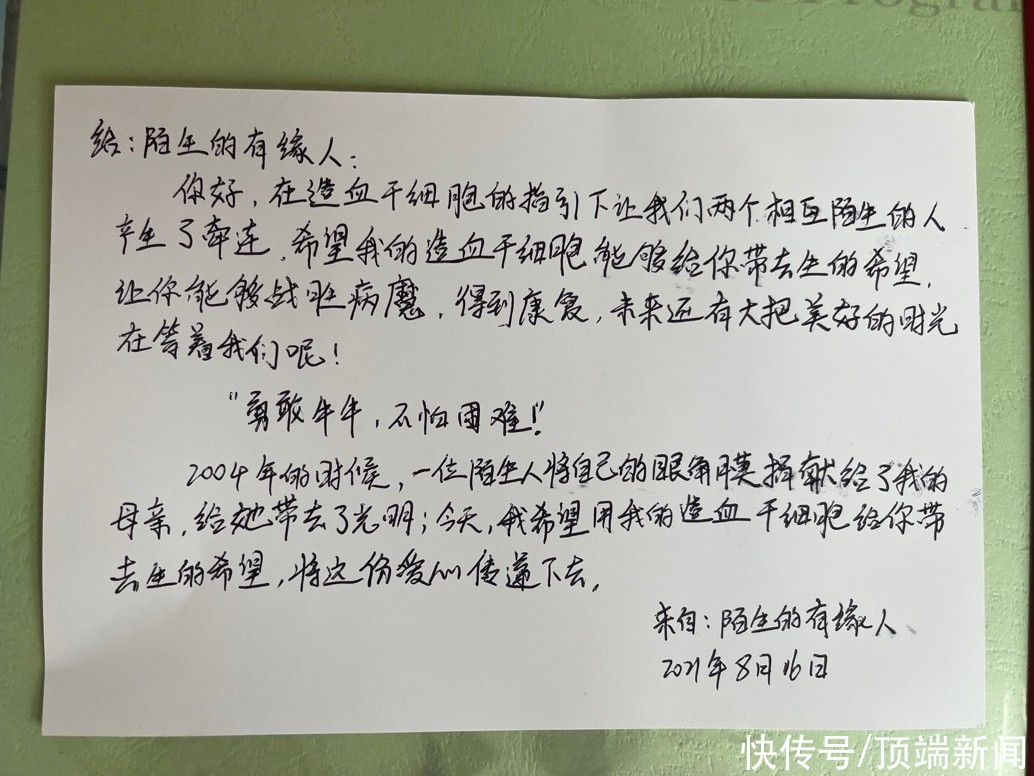 Progra
给：陌生的有缘人：
你好，在造血干细胞的指引下让我们两个相互陌生的人
产生了牵连，希望我的造血干细胞能够给你带去生的希望，
让你能够战胜病魔，得到康复，未来还有大把美好的时光
在等着我们呢！
“勇敢牛牛，不怕困难！”
2004年的时候，一位陌生人将自己的眼角膜捐献给了我的
母亲，给她带去了光明；今天，我希望用我的造血干细胞给你带
去生的希望，将这份爱心传递下去。
来自：陌生的有缘人
2021年8月16日
快传号/顶端新闻